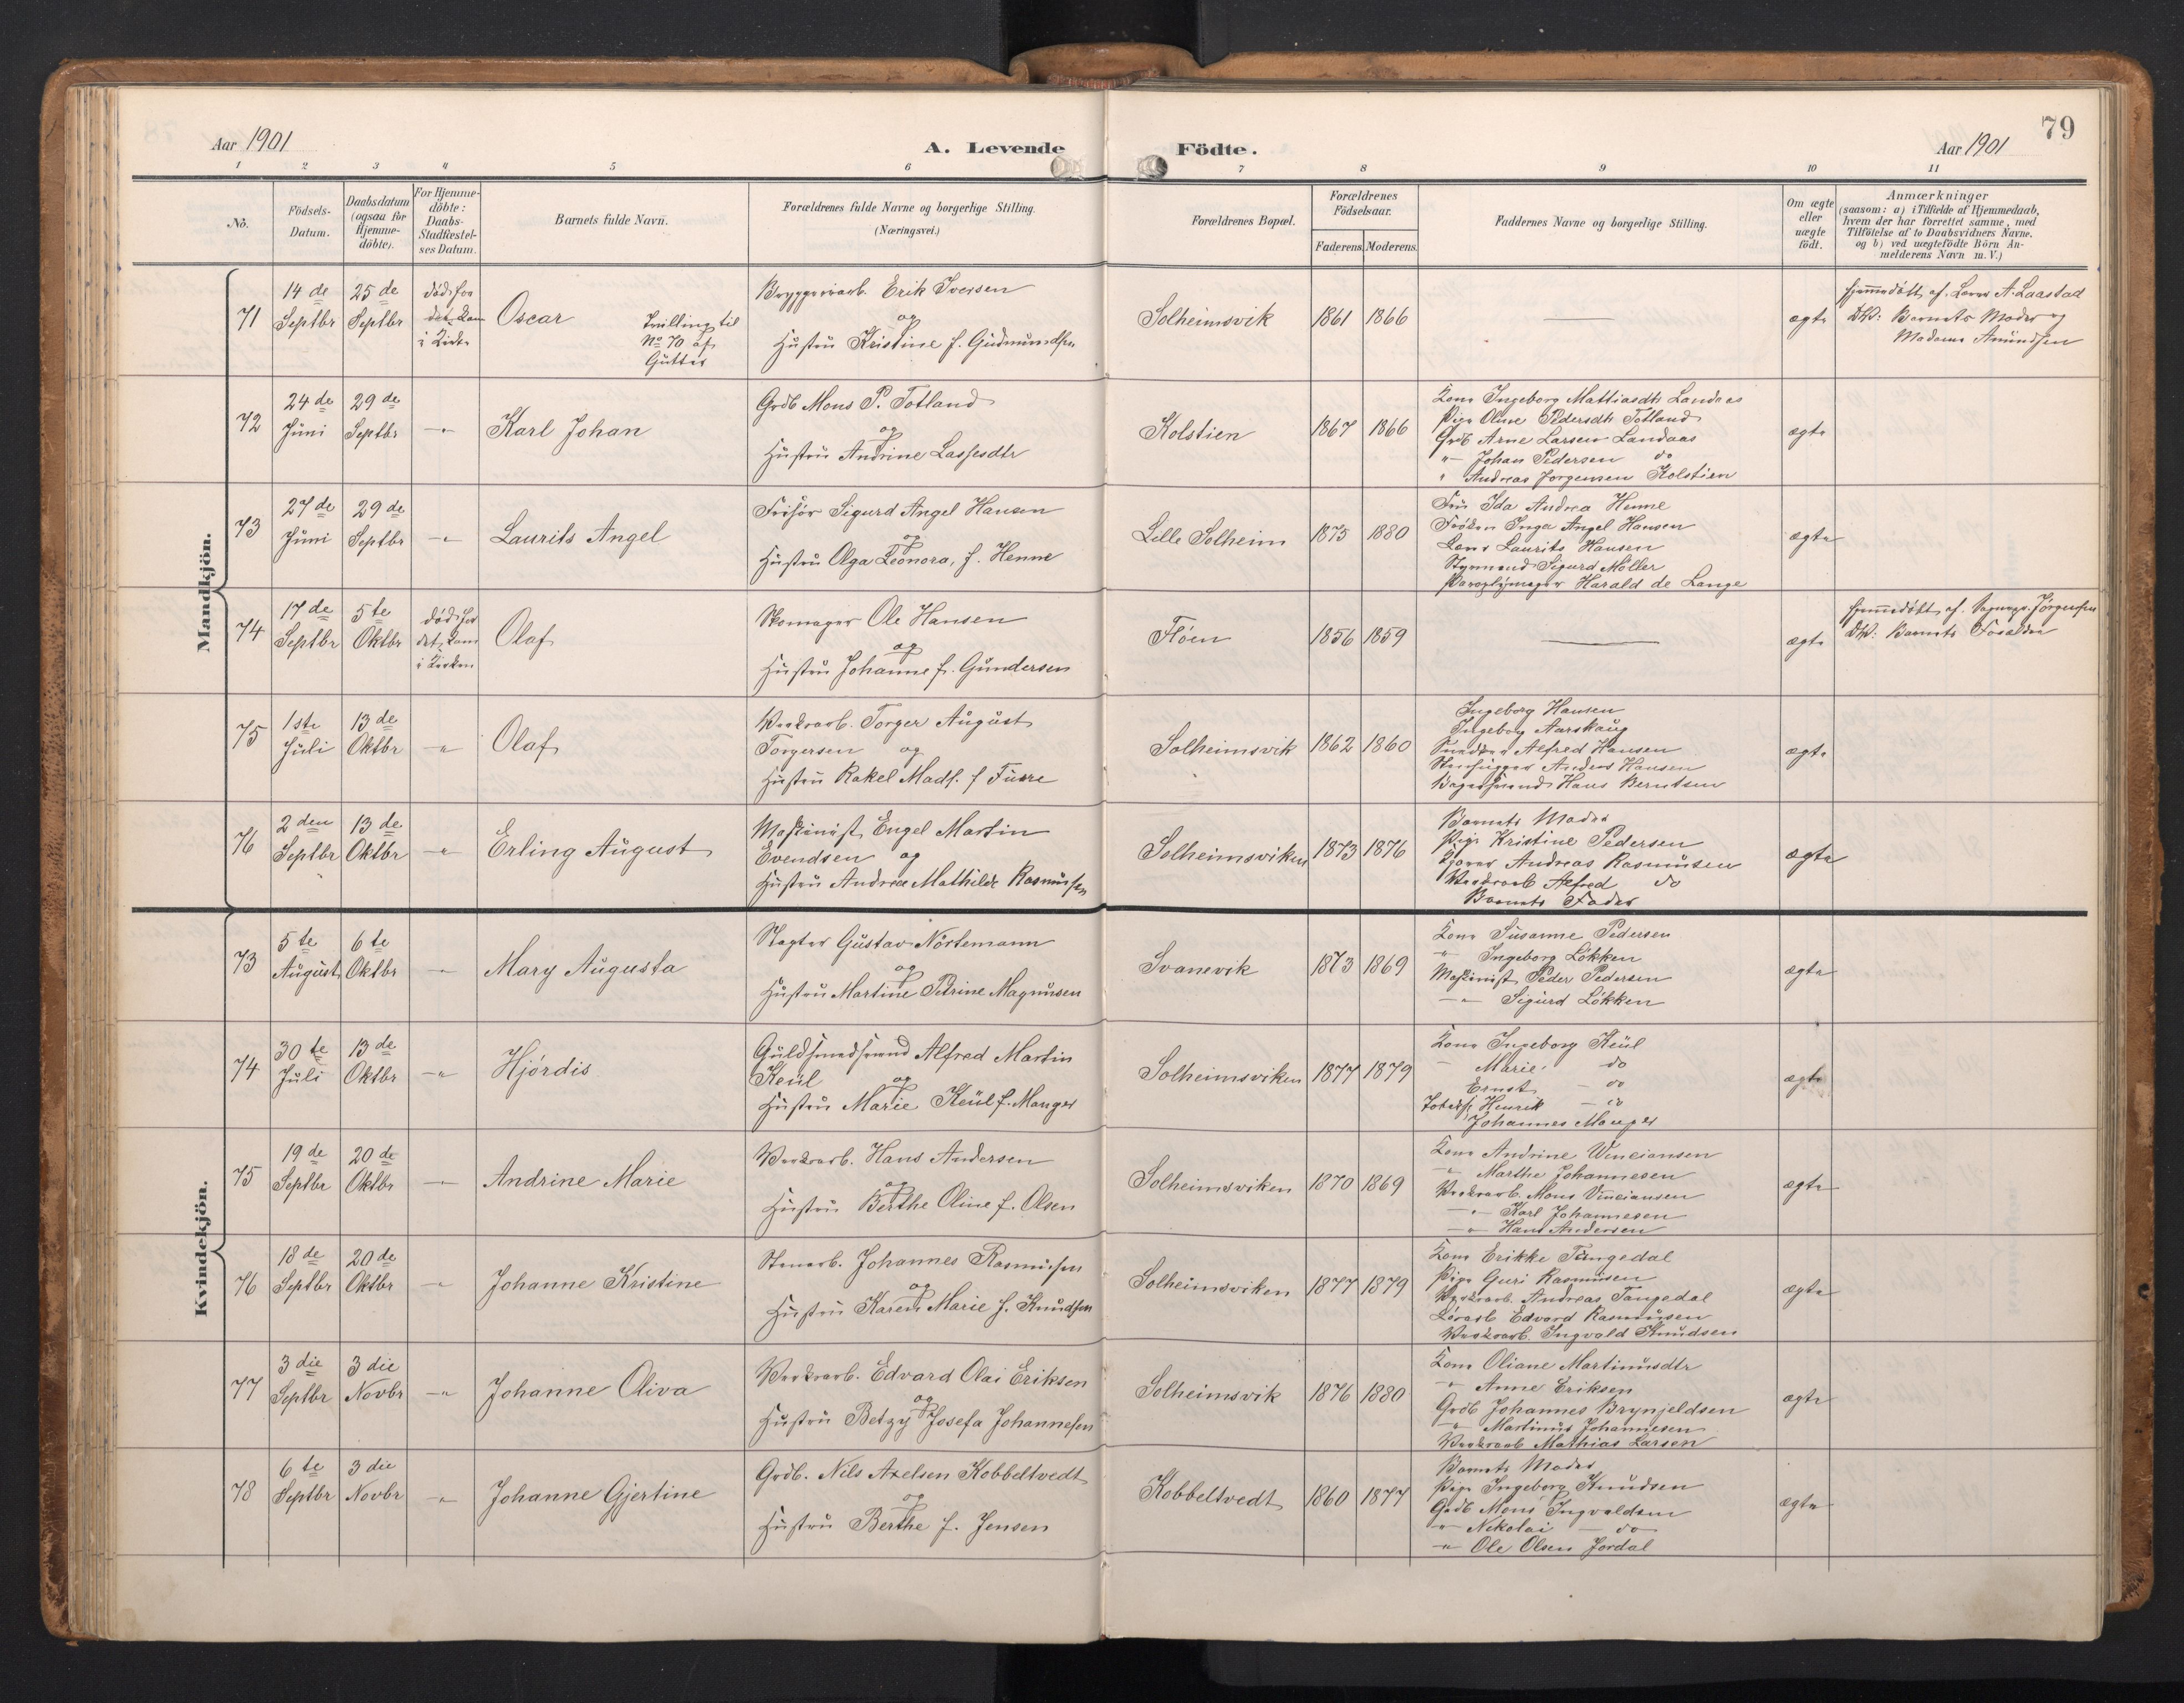 79
Aar 1901
A. Levende Födte.
Aar 1901
1 2 3 4 5 6 7 8 9 10 11
No.
Födsels-
Datum.
Daabsdatum
(ogsaa for
Hjemme-
döbte).
For Hjemme-
döbte:
Daabs-
Stadfæstel-
ses Datum.
Barnets fulde Navn.
Forældrenes fulde Navne og borgerlige Stilling.
(Næringsvei.)
Forældrenes Bopæl.
Forældrenes
Födselsaar.
Faderens.
Moderens.
Faddernes Navne og borgerlige Stilling.
Om ægte
eller
uægte
födt.
Anmærkninger
(saasom: a) i Tilfælde af Hjemmedaab,
hvem der har forrettet samme, med
Tilföielse af to Daabsvidners Navne.
og b) ved uægtefödte Börn An-
melderens Navn m. V.)
Mandkjön.
71
14 de
Septbr
25 de
Septbr
död før
det kom
i Kirke
Oscar
Trilling til
No 70 af
Gutter
Bryggeriarb. Erik Iversen
og
Hustru Kristine f. Gudmundsen
Solheimsvik
1861
1866
ægte
Hjemmedöbt af Lærer A. Laastad
DV: Barnets Moder og
Madame Amundsen
72
24 de
Juni
29 de
Septbr
-"-
Karl Johan
Grdb Mons P. Totland
og
Hustru Andrine Lassesdtr
Kolstien
1867
1866
Kone Ingeborg Mattiasdtr Landaas
Pige Oline Pedersdtr Totland
Grdb Arne Larsen Landaas
"- Johan Pedersen do
" Andreas Jorgensen Kolstien
ægte
73
27 de
Juni
29 de
Septbr
-"-
Laurits Angel
Frisör Sigurd Angel Hansen
og
Hustru Olga Leonora, f. Henne
Lille Solheim
1875
1880
Fru Ida Andrea Henne
Fröken Inga Angel Hansen
Laurits Hansen
Styrmand Sigurd Möller
Paraplymager Harald de Lange
ægte
74
17 de
Septbr
5 te
Oktbr
död før
det kom
i Kirken
Olaf
Skomager Ole Hansen
og
Hustru Johanne f. Gundersen
Flöen
1856
1859
ægte
Hjemmedöbt af Jörgensen
DV: Barnets Forældre
75
1ste
Juli
13 de
Oktbr
-"-
Olaf
Værkarb. Torger August
Torgersen og
Hustru Rakel Mads. f Furre
Solheimsvik
1862
1860
Ingeborg Hansen
Ingeborg Aarskaug
Snedker Alfred Hansen
Stenhugger Anders Hansen
Bagersvend Hans Berntsen
ægte
76
2 den
Septbr
13 de
Oktbr
-"-
Erling August
Maskinist Engel Martin
Evendsen og
Hustru Andrea Mathilde Rasmussen
Solheimsviken
1873
1876
Barnets Moder
Pige Kristine Pedersen
Andreas Rasmussen
Værkarb Alfred do
Barnets Fader
ægte
Kvindekjön.
73
5 te
August
6 te
Oktbr
-"-
Mary Augusta
Slagter Gustav Nörtemann
og
Hustru Martine Petrine Magnusen
Svanevik
1873
1869
Kone Susanne Pedersen
"- Ingeborg Lökken
Maskinist Peder Pedersen
-"- Sigurd Lökken
ægte
74
30 te
Juli
13 de
Oktbr
-"-
Hjördis
Guldsmedsvend Alfred Martin
Keül og
Hustru Marie Keül f. Manger
Solheimsviken
1877
1879
Kone Ingeborg Keül
- Marie do
Ernst - do
Henrik - do
Johannes Manger
ægte
75
19 de
Septbr
20 de
Oktbr
-"-
Andrine Marie
Værkarb. Hans Andersen
og
Hustru Berthe Oline f. Olsen
Solheimsviken
1870
1869
Kone Andrine Vinciansen
-"- Marthe Johannesen
Værkarb. Mons Vinciansen
-"- Karl Johannesen
-"- Hans Andersen
ægte
76
18 de
Septbr
20 de
Oktbr
-"-
Johanne Kristine
Stenarb. Johannes Rasmussen
og
Hustru Karen Marie f. Knudsen
Solheimsviken
1877
1879
Kone Erikke Tangedal
Pige Guri Rasmussen
Værkarb. Andreas Tangedal
Edvard Rasmussen
Værkarb. Ingvald Knudsen
ægte
77
3 die
Septbr
3 die
Novbr
-"-
Johanne Oliva
Værkarb. Edvard Olai Eriksen
og
Hustru Betzy Josefa Johannesen
Solheimsvik
1876
1880
Kone Oliane Martinusdtr
-"- Anne Eriksen
Grdb Johannes Brynjeldsen
-"- Martinus Johannesen
Værkarb Mathias Larsen
ægte
78
6 te
Septbr
3 die
Novbr
-"-
Johanne Gjertine
Grdb. Nils Axelsen Kobbeltvedt
og
Hustru Berthe f. Jensen
Kobbeltvedt
1860
1877
Barnets Moder
Pige Ingeborg Knudsen
Grdb Mons Ingvaldsen
-"- Nikolai - do
-"- Ole Olsen Jordal
ægte